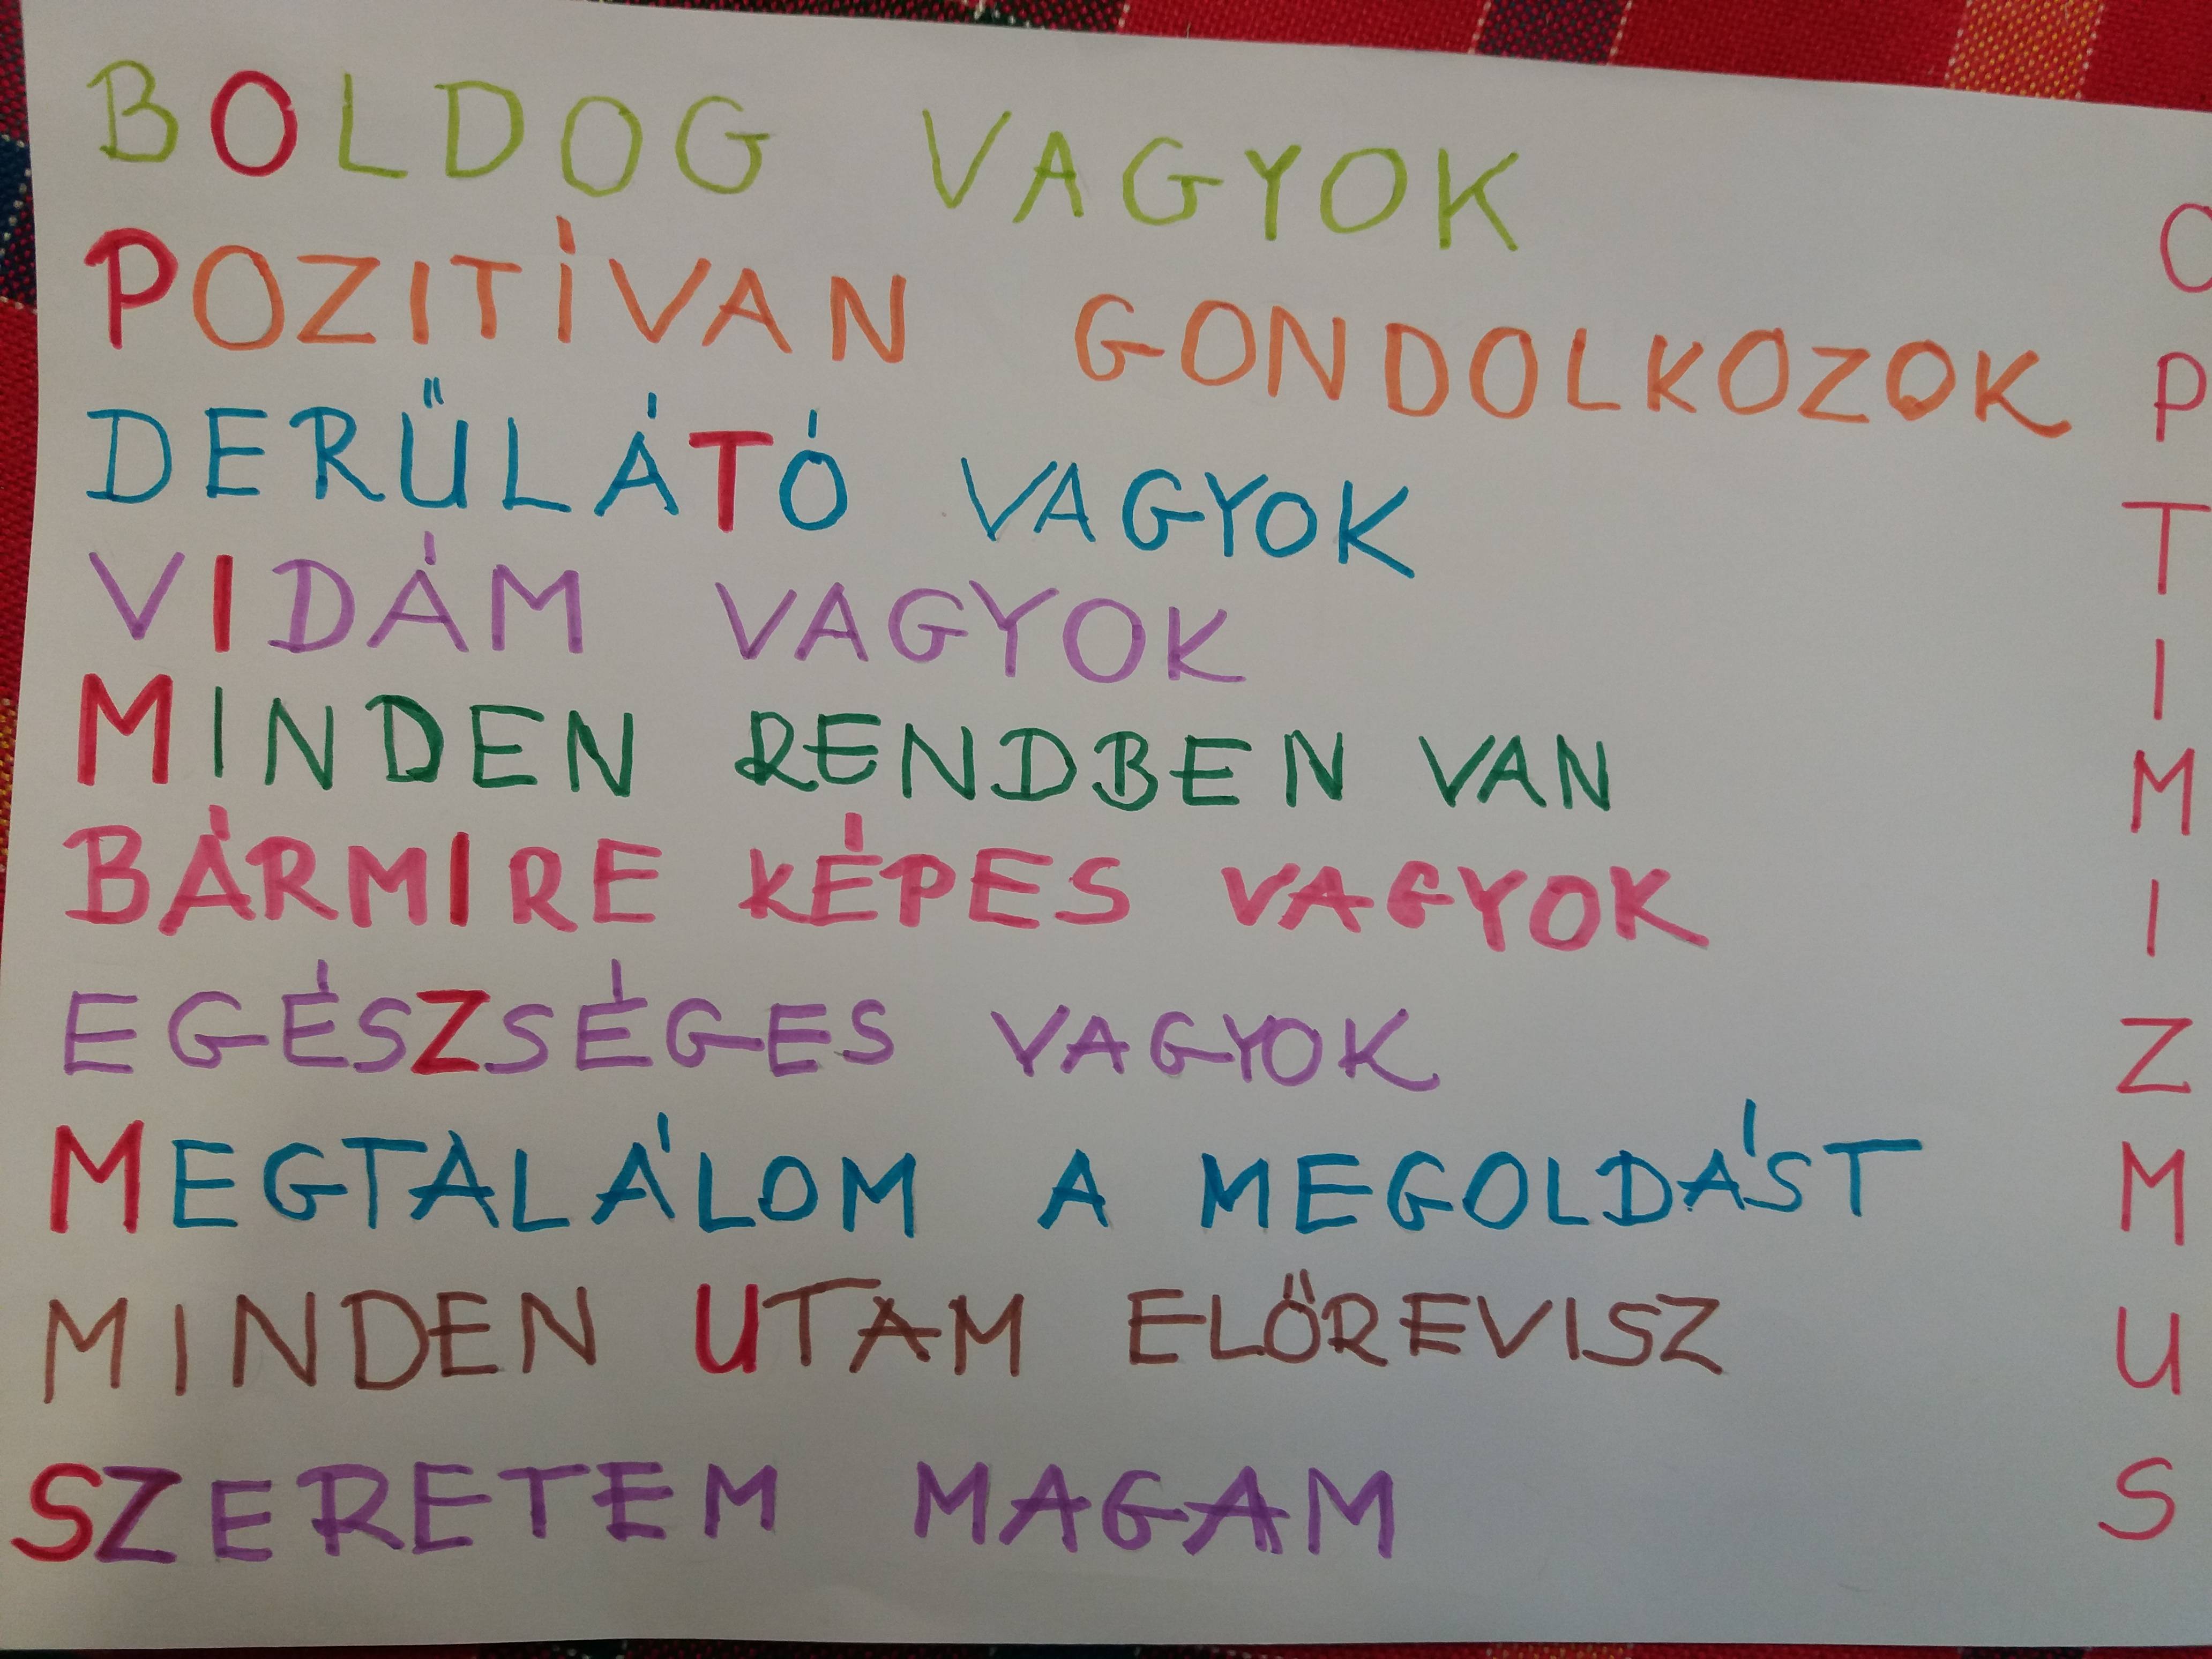 BOLDOG VAGYOK
POZITÍVAN GONDOLKOZOK
DERŰLÁTÓ VAGYOK
VIDÁM VAGYOK
MINDEN RENDBEN VAN
BÁRMIRE KÉPES VAGYOK
EGÉSZSÉGES VAGYOK
MEGTALÁLOM A MEGOLDÁST
MINDEN UTAM ELŐREVISZ
SZERETEM MAGAM
O
P
T
I
M
I
Z
M
U
S